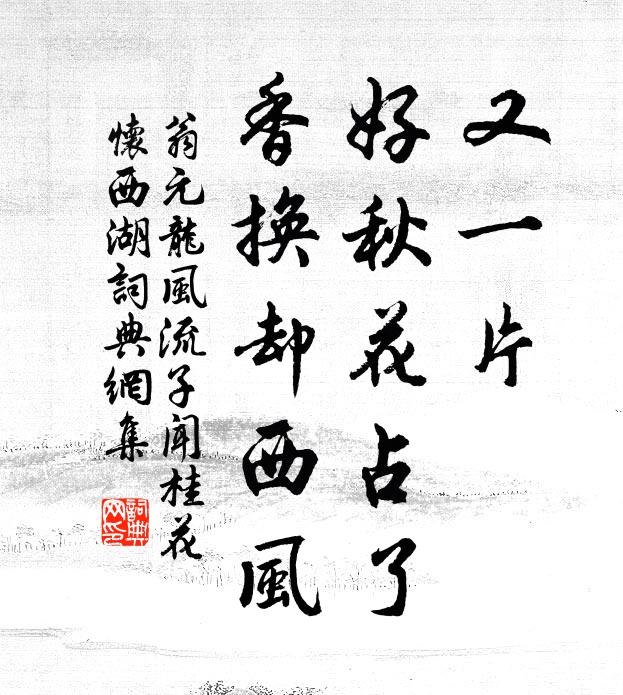 又一片
好秋花占了
香換却西風
翁元龍風流子聞桂花
懷西湖詞典網集
詞典
网印